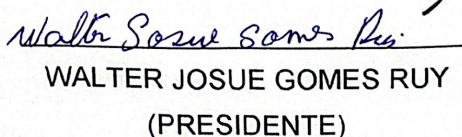 Walter Josue Gomes Ruy
WALTER JOSUE GOMES RUY
(PRESIDENTE)